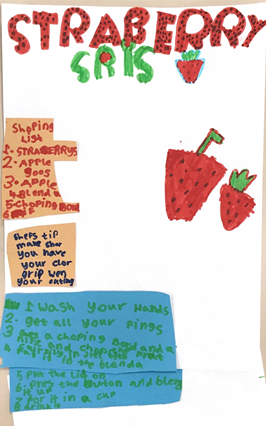 STRABERRY
SRIS
Shoping
List
1. STRABERRYS
2. Apple
goos
3. Apple
4. Blenda
5-choping Bord
6
shefs tip
make shor
you have
your clor
grip wen
your cuting
1 wash your Hands
2. get all your Fings
3 get a choping Bord and a
and
in the blenda
5 Put the Lid on
6. pres the Button and blend
it up
7 Por it in a cup